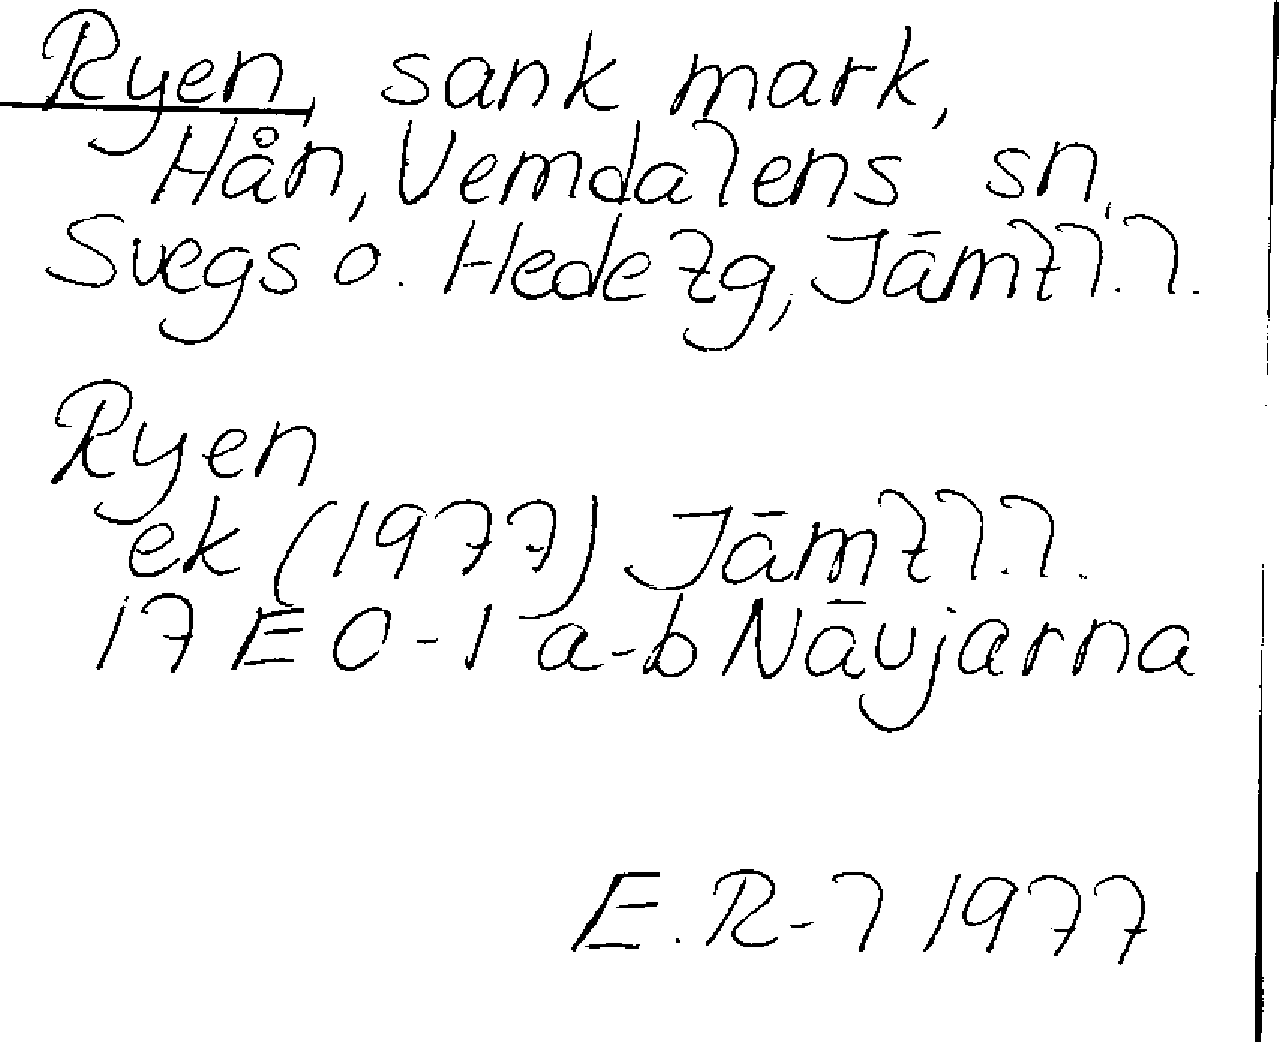 Ryen, sank mark,
Hån, Vemdalens sn,
Svegs o. Hede tg, Jämtl.l.
Ryen
ek (1977) Jämtl.l.
17 E 0-1 a-b Nävjarna
E.R-l 1977